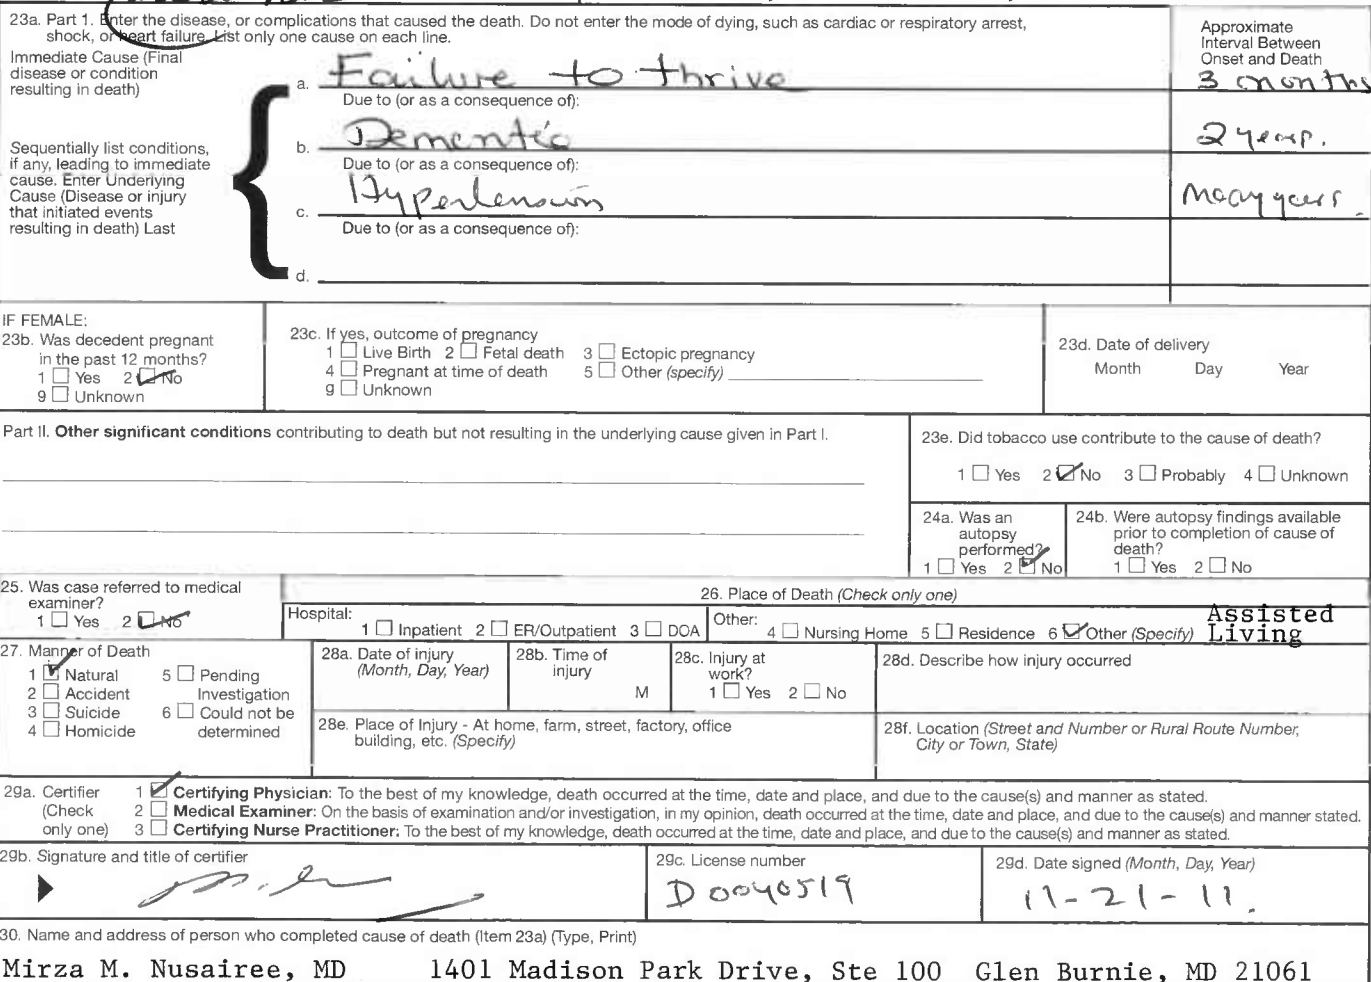 23a. Part 1. Enter the disease, or complications that caused the death. Do not enter the mode of dying, such as cardiac or respiratory arrest,
shock, or heart failure. List only one cause on each line.
Approximate
Interval Between
Onset and Death
Immediate Cause (Final
disease or condition
resulting in death)
a. Failure to thrive
3 months
Due to (or as a consequence of):
Sequentially list conditions,
if any, leading to immediate
cause. Enter Underlying
Cause (Disease or injury
that initiated events
resulting in death) Last
b. Dementia
2 years.
Due to (or as a consequence of):
c. Hypertension
Many years.
Due to (or as a consequence of):
d.
IF FEMALE:
23b. Was decedent pregnant
in the past 12 months?
1 ☐ Yes 2 ☑ No
9 ☐ Unknown
23c. If yes, outcome of pregnancy
1 ☐ Live Birth 2 ☐ Fetal death 3 ☐ Ectopic pregnancy
4 ☐ Pregnant at time of death 5 ☐ Other (specify)
9 ☐ Unknown
23d. Date of delivery
Month Day Year
Part II. Other significant conditions contributing to death but not resulting in the underlying cause given in Part I.
23e. Did tobacco use contribute to the cause of death?
1 ☐ Yes 2 ☑ No 3 ☐ Probably 4 ☐ Unknown
24a. Was an
autopsy
performed?
1 ☐ Yes 2 ☑ No
24b. Were autopsy findings available
prior to completion of cause of
death?
1 ☐ Yes 2 ☐ No
25. Was case referred to medical
examiner?
1 ☐ Yes 2 ☑ No
26. Place of Death (Check only one)
Hospital: 1 ☐ Inpatient 2 ☐ ER/Outpatient 3 ☐ DOA
Other: 4 ☐ Nursing Home 5 ☐ Residence 6 ☑ Other (Specify)
Assisted
Living
27. Manner of Death
1 ☑ Natural 5 ☐ Pending
2 ☐ Accident Investigation
3 ☐ Suicide 6 ☐ Could not be
4 ☐ Homicide determined
28a. Date of injury
(Month, Day, Year)
28b. Time of
injury
M
28c. Injury at
work?
1 ☐ Yes 2 ☐ No
28d. Describe how injury occurred
28e. Place of Injury - At home, farm, street, factory, office
building, etc. (Specify)
28f. Location (Street and Number or Rural Route Number,
City or Town, State)
29a. Certifier
(Check
only one)
1 ☑ Certifying Physician: To the best of my knowledge, death occurred at the time, date and place, and due to the cause(s) and manner as stated.
2 ☐ Medical Examiner: On the basis of examination and/or investigation, in my opinion, death occurred at the time, date and place, and due to the cause(s) and manner stated.
3 ☐ Certifying Nurse Practitioner: To the best of my knowledge, death occurred at the time, date and place, and due to the cause(s) and manner as stated.
29b. Signature and title of certifier
29c. License number
D0040519
29d. Date signed (Month, Day, Year)
11-21-11.
30. Name and address of person who completed cause of death (Item 23a) (Type, Print)
Mirza M. Nusairee, MD 1401 Madison Park Drive, Ste 100 Glen Burnie, MD 21061